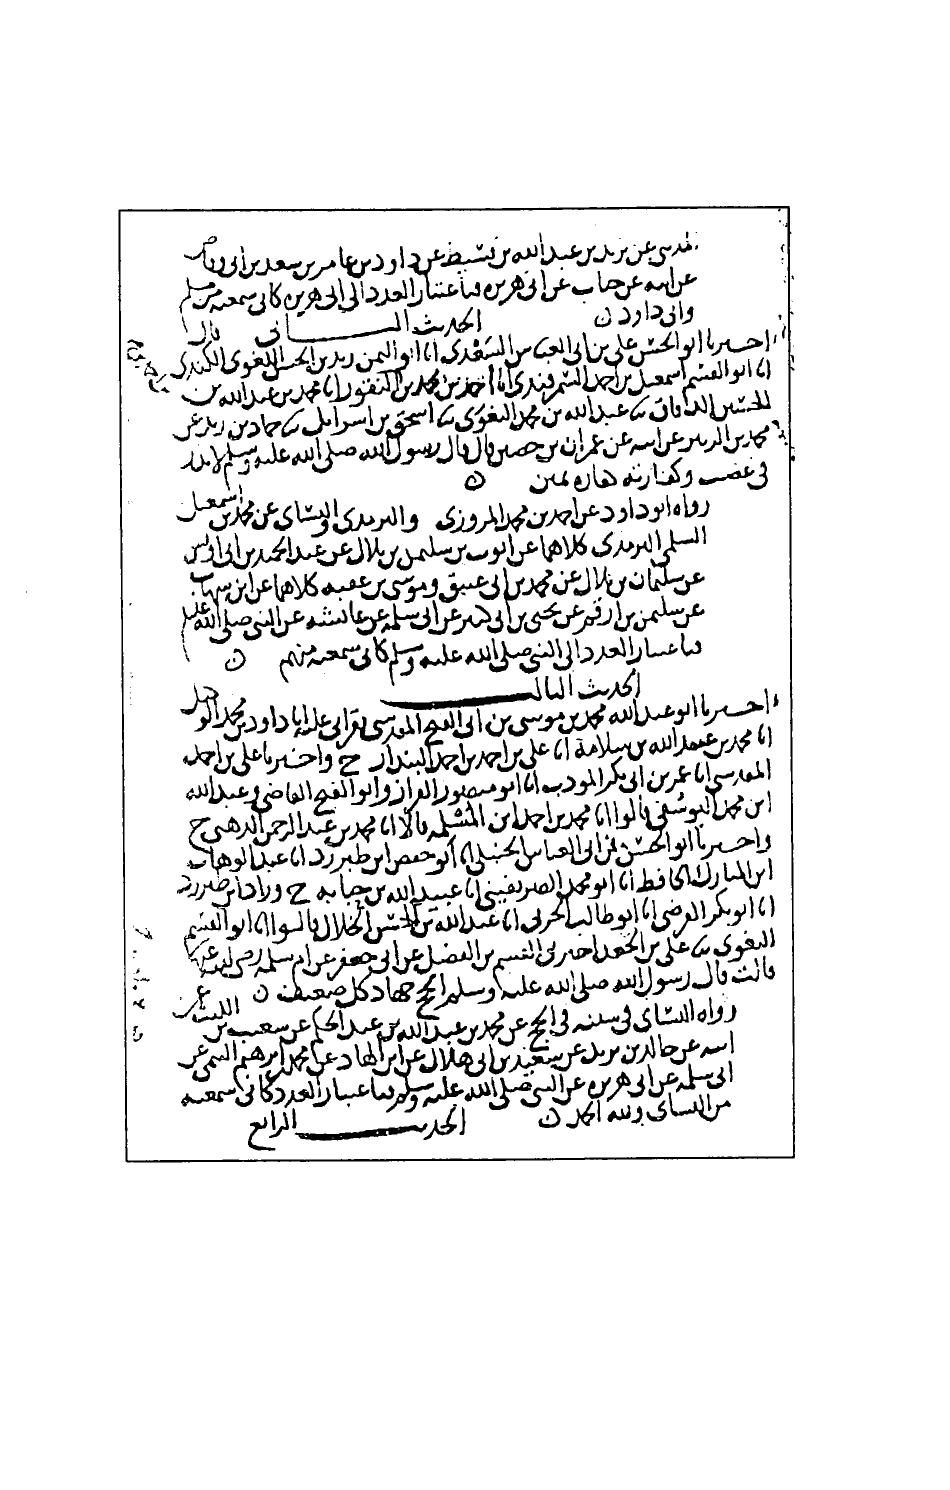 المقدسي عن يزيد بن عبد الله بن نشيط عن داود بن عامر بن سعد بن أبي وقاص
عن أبيه عن خباب عن أبي هريرة فباعتبار العدد إلى أبي هريرة كأني سمعته من مسلم
وأبي داود ن
الحديث الثاني
أخبرنا أبو الحسن علي بن أبي العباس السعدي أنا أبو اليمن زيد بن الحسن اللغوي الكندي
أنا أبو القسم اسمعيل بن احمد السمرقندي أنا أحمد بن محمد بن النقور أنا محمد بن عبد الله بن
الحسين الدقاق ثنا عبد الله بن محمد البغوي ثنا اسحق بن اسرائيل ثنا حماد بن زيد عن
محمد بن الزبير عن أبيه عن عمران بن حصين قال قال رسول الله صلى الله عليه وسلم لا نذر
في غضب وكفارته كفارة يمين ن
رواه أبو داود عن احمد بن محمد المروزي والترمذي والنسائي عن محمد بن اسمعيل
السلمي الترمذي كلاهما عن أيوب بن سليمن بن بلال عن عبد الحميد بن أبي أويس
عن سليمان بن بلال عن محمد بن أبي عتيق وموسى بن عقبة كلاهما عن ابن شهاب
عن سليمن بن ارقم عن يحيى بن أبي كثير عن أبي سلمة عن عائشة عن النبي صلى الله عليه
فباعتبار العدد إلى النبي صلى الله عليه وسلم كأني سمعته منهم ن
الحديث الثالث
أخبرنا أبو عبد الله محمد بن موسى بن أبي الفتح المقدسي بقراءتي عليه أنا داود بن محمد
أنا محمد بن عبد الله بن سلامة أنا علي بن احمد بن احمد البندار ح وأخبرنا علي بن احمد
المقدسي أنا عمر بن أبي بكر المؤدب أنا أبو منصور القزاز وأبو الفتح القاضي وعبد الله
ابن محمد اليوسفي قالوا أنا محمد بن احمد ابن المسلمة قالا أنا محمد بن عبد الرحمن الذهبي ح
وأخبرنا أبو الحسن بن أبي العباس الحنبلي أنا أبو حفص ابن طبرزد أنا عبد الوهاب
ابن المبارك الحافظ أنا أبو محمد الصريفيني أنا عبيد الله بن حبابة ح وزاد ابن طبرزد
أنا أبو بكر الفرضي أنا أبو طالب الحربي أنا عبد الله بن الحسن الخلال قالوا أنا أبو القسم
البغوي ثنا علي بن الجعد أخبرني القسم بن الفضل عن أبي جعفر عن أم سلمة رضي الله عنها
قالت قال رسول الله صلى الله عليه وسلم الحج جهاد كل ضعيف ن
رواه النسائي في سننه في الحج عن محمد بن عبد الله بن عبد الحكم عن شعيب بن الليث عن
أبيه عن خالد بن يزيد عن سعيد بن أبي هلال عن ابن الهاد عن محمد بن ابرهيم التيمي عن
أبي سلمة عن أبي هريرة عن النبي صلى الله عليه وسلم فباعتبار العدد كأني سمعته
من النسائي ولله الحمد ن
الحديث الرابع